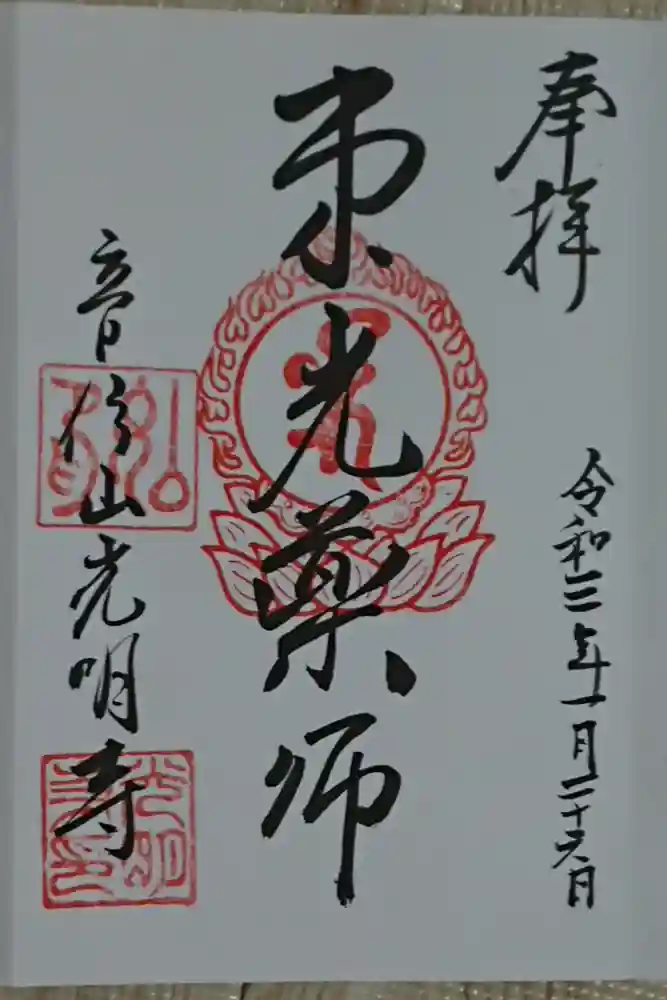 奉拝
令和三年一月二十六日
東光薬師
音信山光明寺